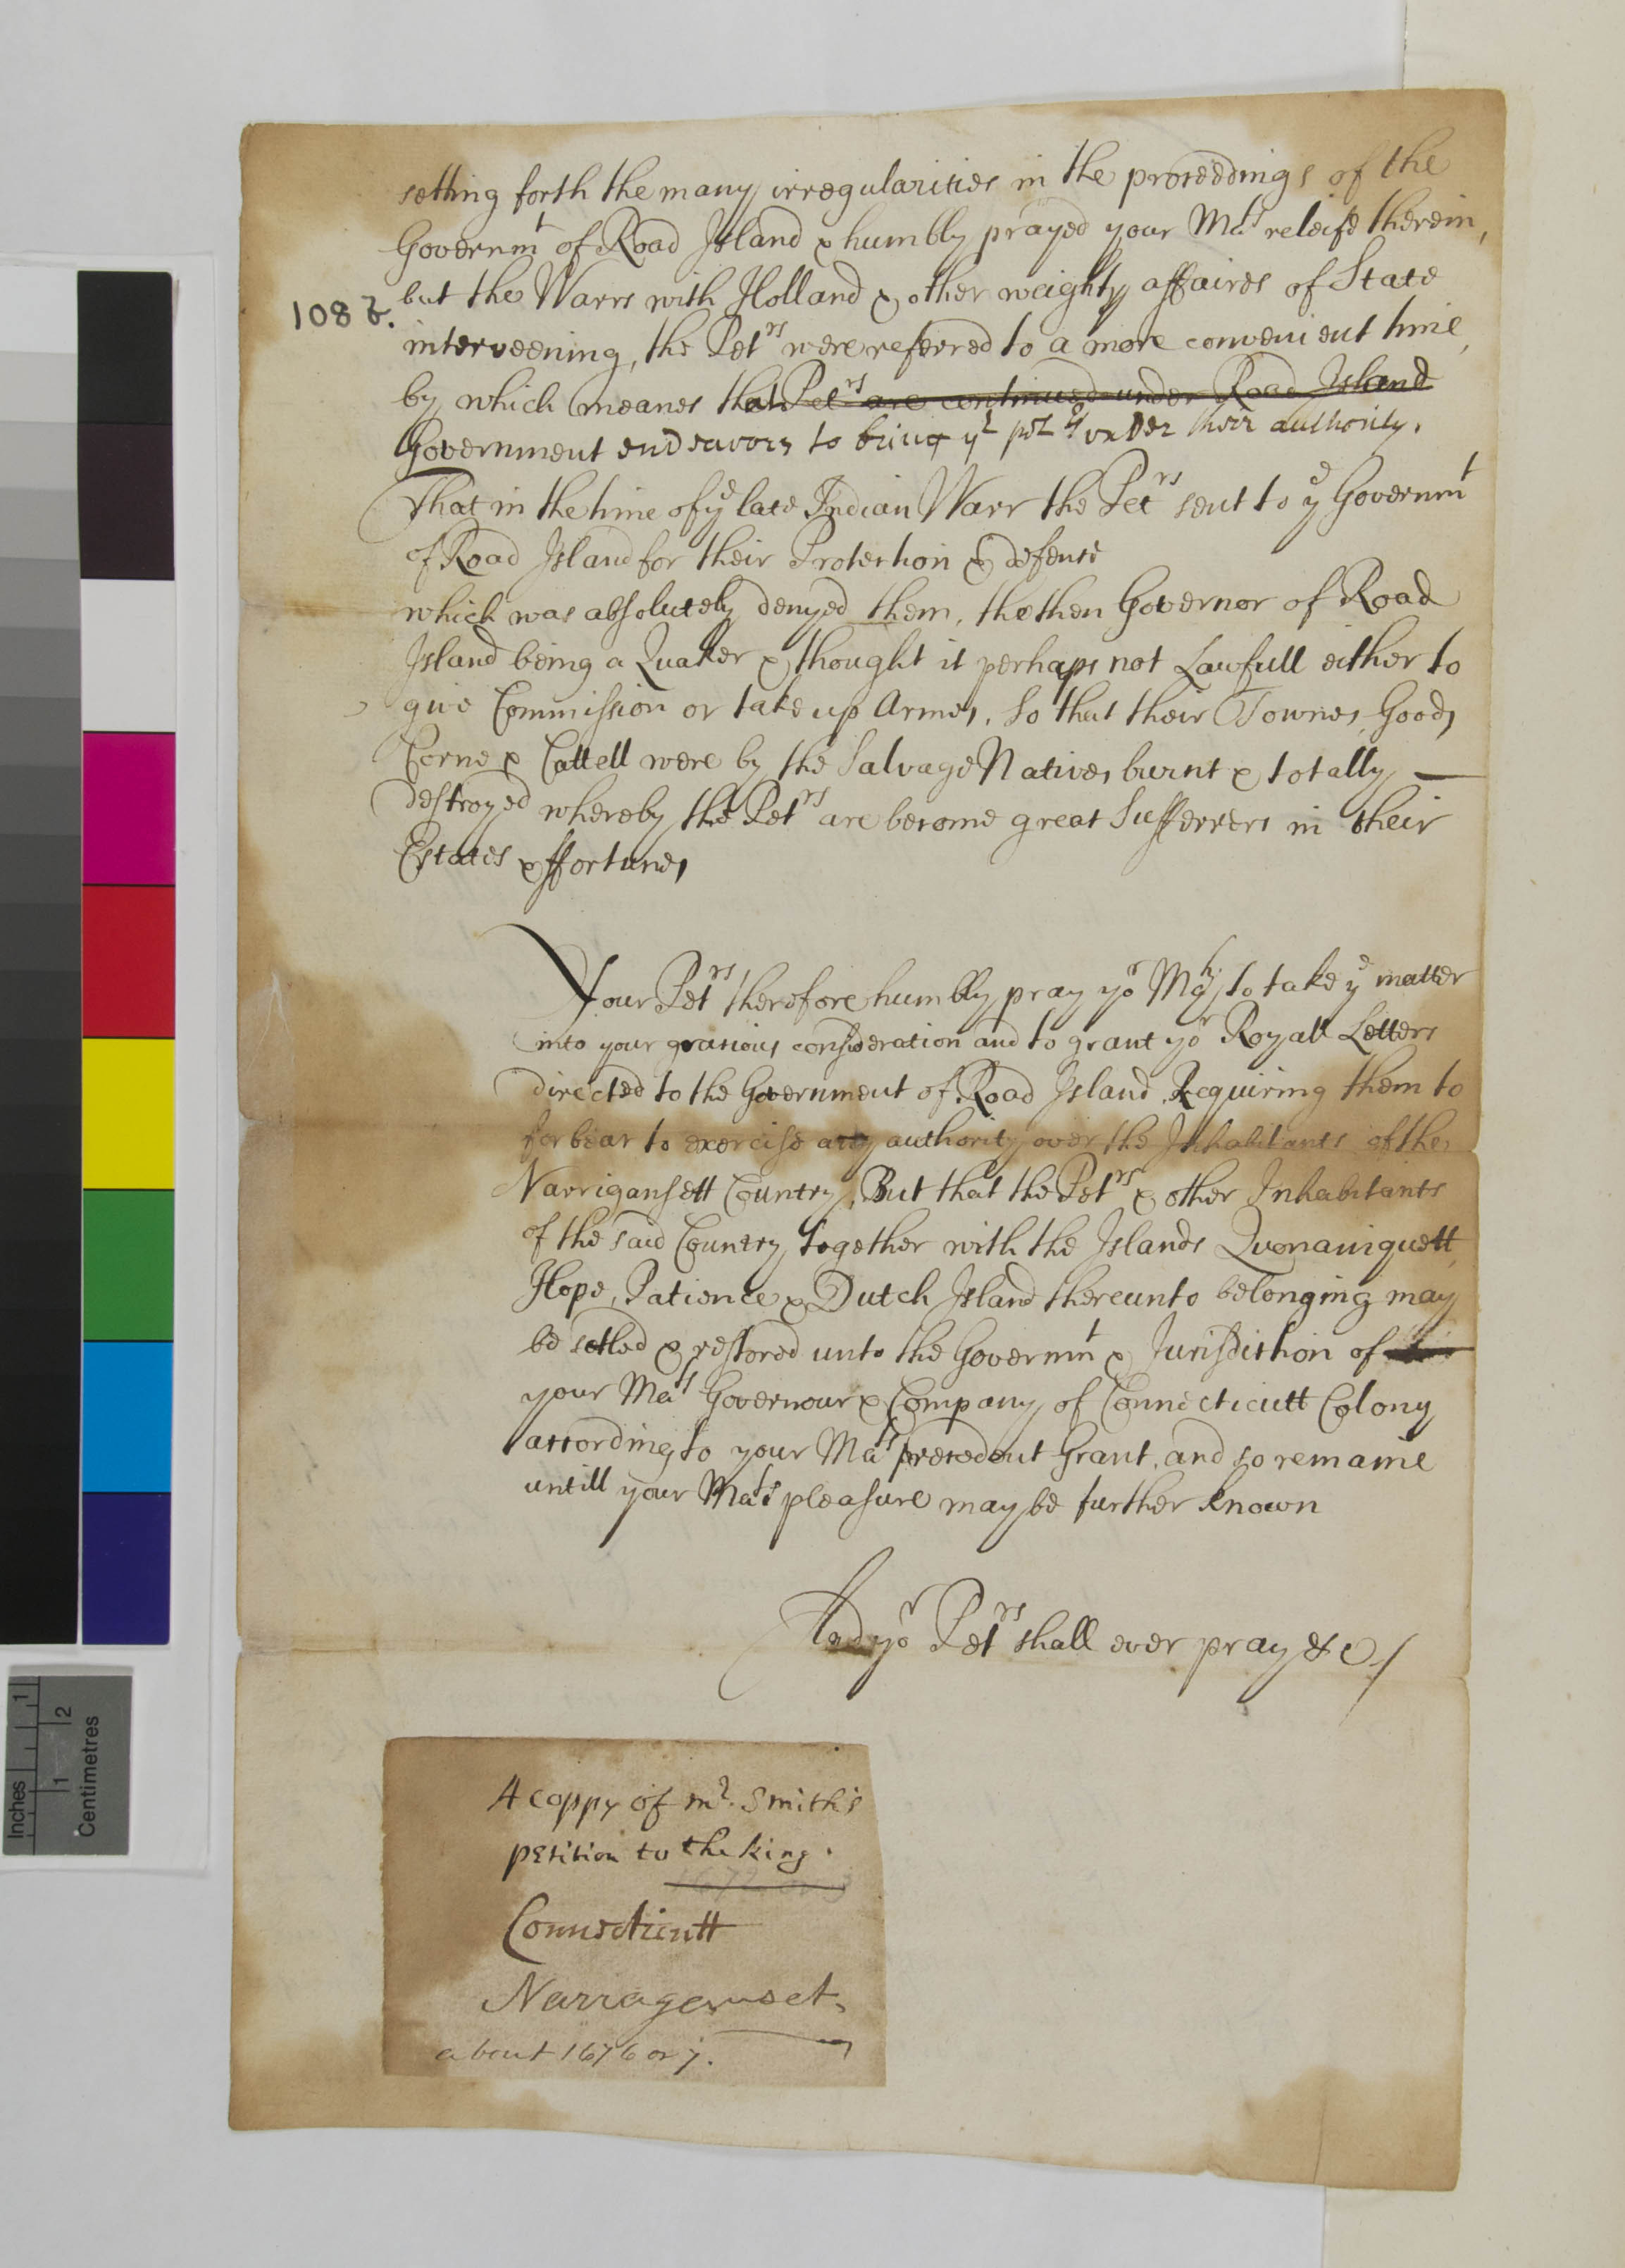 setting forth the many irregularities in the proceedings of the
Governmt of Road Island & humbly prayed your Mats releife therein,
but the Warrs with Holland & other weighty affaires of State
108 b.
interveening, the Petrs were referred to a more convenient time,
by which meanes that Petrs are continued under Road Island
Government endeavors to bring yr petrs under their authority.
That in the time of ye late Indian Warr the Petrs sent to ye Governmt
of Road Island for their Protection & defence
which was absolutely denyed them, the then Governor of Road
Island being a Quaker & thought it perhaps not Lawfull either to
give Commission or take up Armes, So that their Townes, Goods,
Corne & Cattell were by the Salvage Natives burnt & totally
destroyed whereby the Petrs are become great Sufferrers in their
Estates & ffortunes
Your Petrs therefore humbly pray yor Maty to take ye matter
into your gracious consideration and to grant yor Royall Letters
directed to the Government of Road Island, Requiring them to
forbear to exercise any authority over the Inhabitants of the
Narrigansett Country, But that the Petrs & other Inhabitants
of the said Country, together with the Islands Quonaniquett,
Hope, Patience & Dutch Island thereunto belonging may
be setled & restored unto the Governmt & Jurisdiction of
your Mats Governour & Company of Connecticutt Colony
according to your Mats precedent Grant, and so remaine
untill your Mats pleasure may be further known
And yor Petrs shall ever pray &c/
A coppy of mr. Smith's
petition to the King.
Connecticutt
Narraganset.
about 1676 or 7.
Inches 1
1 2
Centimetres